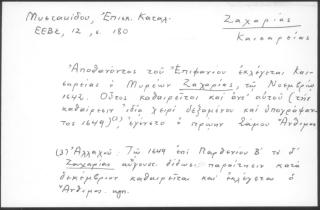 Μυστακίδου, Ἐπισκ. Καταλ.
ΕΕΒΣ, 12, σ. 180
Ζαχαρίας
Καισαρείας
Ἀποθανόντος τοῦ Ἐπιφανίου ἐκλέγεται Και-
σαρείας ὁ Μυρέων Ζαχαρίας, τῷ Νοεμβρίῳ
1642. Οὗτος καθαιρεῖται καὶ ἀντ' αὐτοῦ (τὴν
καθαίρεσιν ἰδίᾳ χειρὶ δεξαμένου καὶ ὑπογράψαν-
τος 1649)(3), ἐγένετο ὁ πρώην Σάμου Ἄνθιμος
(3) Ἀλλαχοῦ: Τῷ 1649 ἐπὶ Παρθενίου Β΄ τῷ δ'
Ζαχαρίας δίδωσι παραίτησιν κατὰ
δεκέμβριον καθαιρεῖται καὶ ἐκλέγεται ὁ
Ἄνθιμος κτλ.